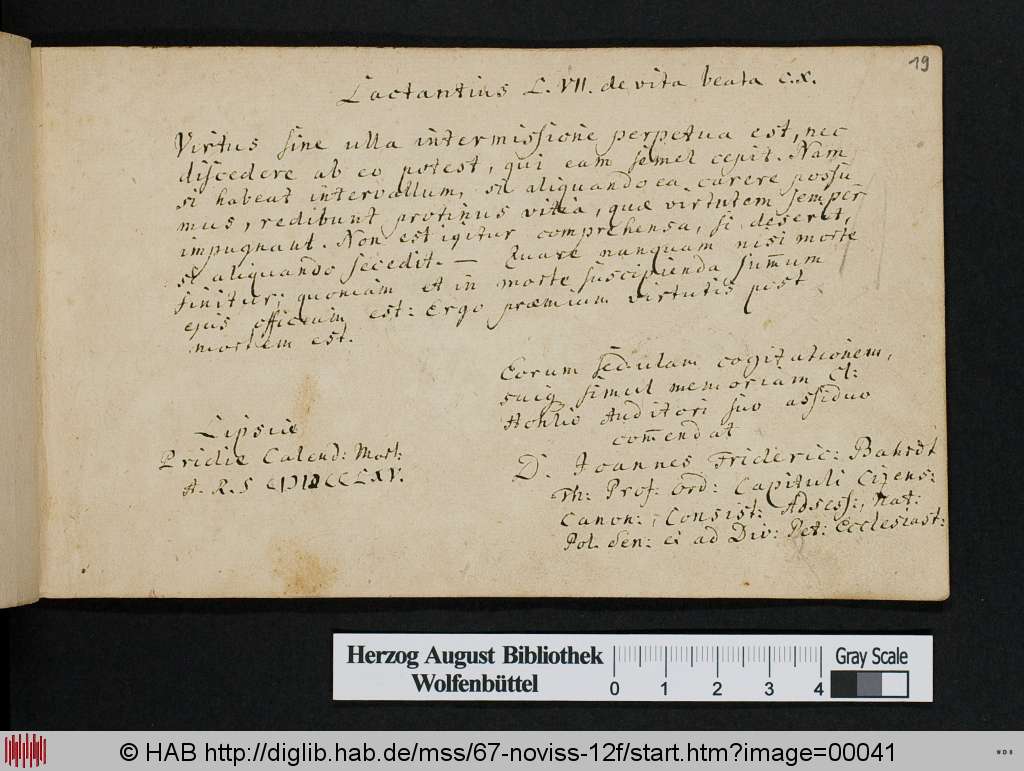 19
Lactantius L. VII. de vita beata c. X.
Virtus sine ulla intermissione perpetua est, nec
discedere ab eo potest, qui eam semel cepit. Nam
si habeat intervallum, si aliquando ea carere possu
mus, redibunt protinus vitia, quæ virtutem semper
impugnant. Non est igitur comprehensa, si deserit,
si aliquando secedit. — Quare nunquam nisi morte
finitur; quoniam et in morte suscipienda sum̄um
ejus officium est: Ergo præmium virtutis post
mortem est.
Eorum sedulam cogitationem,
suiq simul memoriam Cl:
Auditori suo assiduo
com̄endat
D. Joannes Frideric: Bahrdt
Th: Prof: Ord: Capituli Cizens:
Canon:, Consist: Adsess:, Nat:
Pol. Sen: et ad Div: Pet: Ecclesiast:
Lipsiæ
Pridie Calend: Mart:
A. R. S CIƆIƆCCLXV.
Herzog August Bibliothek
Wolfenbüttel
0 1 2 3 4
Gray Scale
© HAB http://diglib.hab.de/mss/67-noviss-12f/start.htm?image=00041